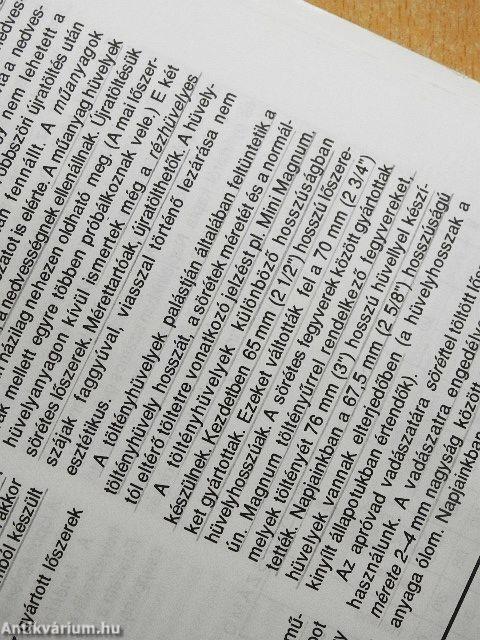 nedves-
ta a nedves-
y nem lehetett a
öbbszöri újratöltés után
n fennállt. A műanyagok
zatot is elérte. A műanyag hüvelyek
a nedvességnek ellenállnak. Újratöltésük
házilag nehezen oldható meg. (A mai lőszer-
ak mellett egyre többen próbálkoznak vele.) E két
hüvelyanyagon kívül ismertek még a rézhüvelyes,
sörétes lőszerek. Mérettartóak, újratölthetők. A hüvely-
szájak faggyúval, viasszal történő lezárása nem
esztétikus.
A töltényhüvelyek palástján általában feltüntetik a
töltényhüvely hosszát, a sörétek méretét és a normál-
tól eltérő töltetre vonatkozó jelzést pl. Mini Magnum.
A töltényhüvelyek különböző hosszúságban
készülnek. Kezdetben 65 mm (2 1/2") hosszú lőszere-
ket gyártottak. Ezeket váltották fel a 70 mm (2 3/4")
hüvelyhosszúak. A sörétes fegyverek között gyártottak
ún. Magnum töltényűrrel rendelkező fegyvereket,
melyek töltényét 76 mm (3") hosszú hüvellyel készí-
tették. Napjainkban a 67,5 mm (2 5/8") hosszúságú
hüvelyek vannak elterjedőben (a hüvelyhosszak a
kinyílt állapotukban értendők).
Az apróvad vadászatára söréttel töltött lős
használunk. A vadászatra engedélye
mérete 2-4 mm nagyság között
anyaga ólom. Napjainkban
akkor
ából készült
gyártott lőszerek
mű-
ot
Antikvárium.hu